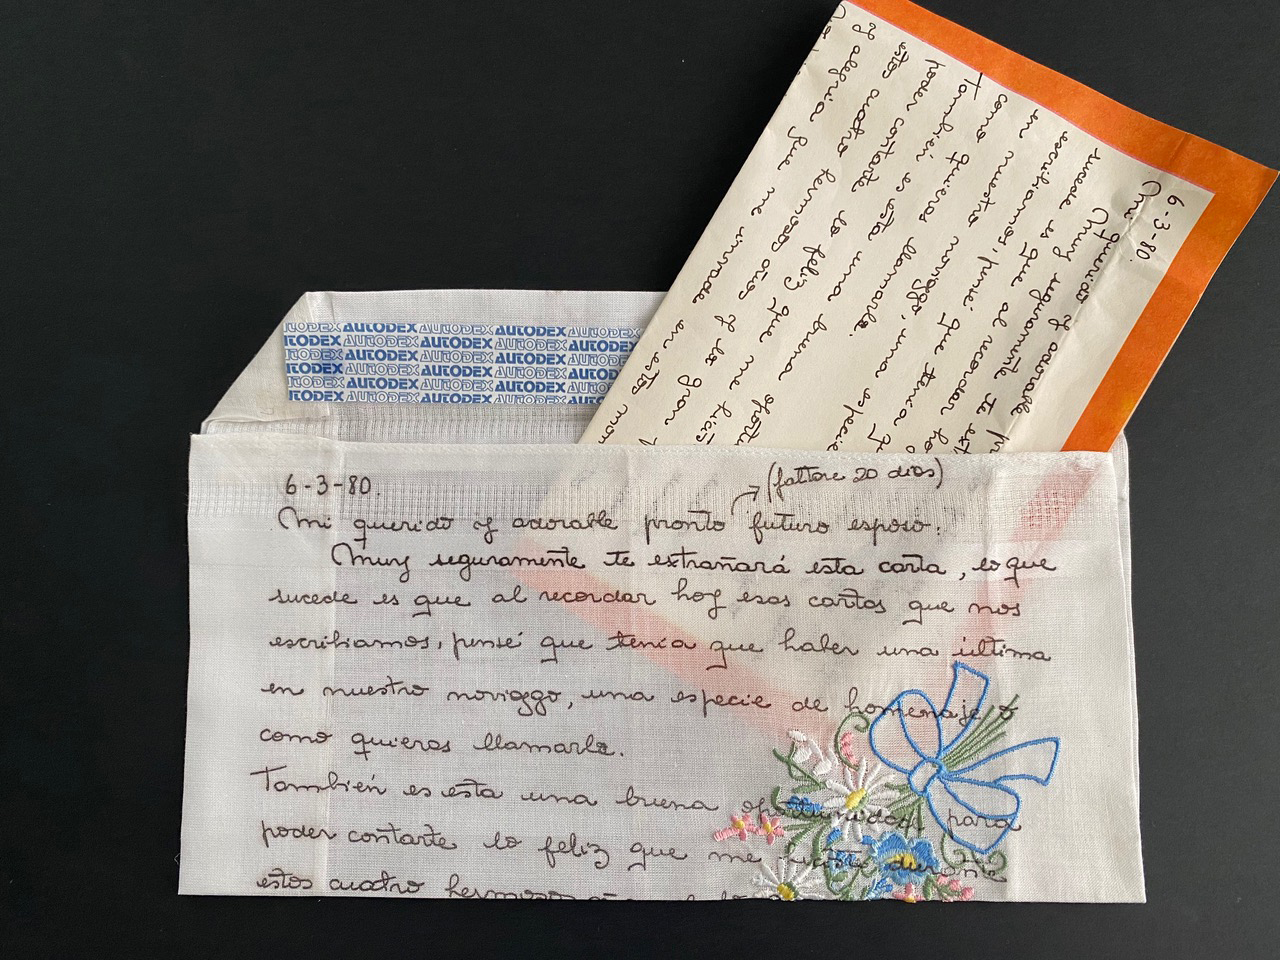 AUTODEX AUTODEX AUTODEX AUTODEX
AUTODEX AUTODEX AUTODEX
AUTODEX AUTODEX AUTODEX AUTODEX
AUTODEX AUTODEX AUTODEX
AUTODEX AUTODEX AUTODEX
6-3-80.
Mi querido y adorable
Muy seguramente te
sucede es que al recordar
escribiamos, pensé que tenía
en nuestro noviazgo, una especie
como quieras llamarla.
También es esta una buena
poder contarte lo feliz que me
estos cuatro hermosos años y la gran
y alegría que me invade en estos
6-3-80.
(faltare 20 dias)
Mi querido y adorable pronto futuro esposo:
Muy seguramente te extrañará esta carta, lo que
sucede es que al recordar hoy esas cartas que nos
escribiamos, pensé que tenía que haber una última
en nuestro noviazgo, una especie de homenaje o
como quieras llamarla.
También es esta una buena oportunidad para
poder contarte lo feliz que me hiciste durante
estos cuatro hermosos